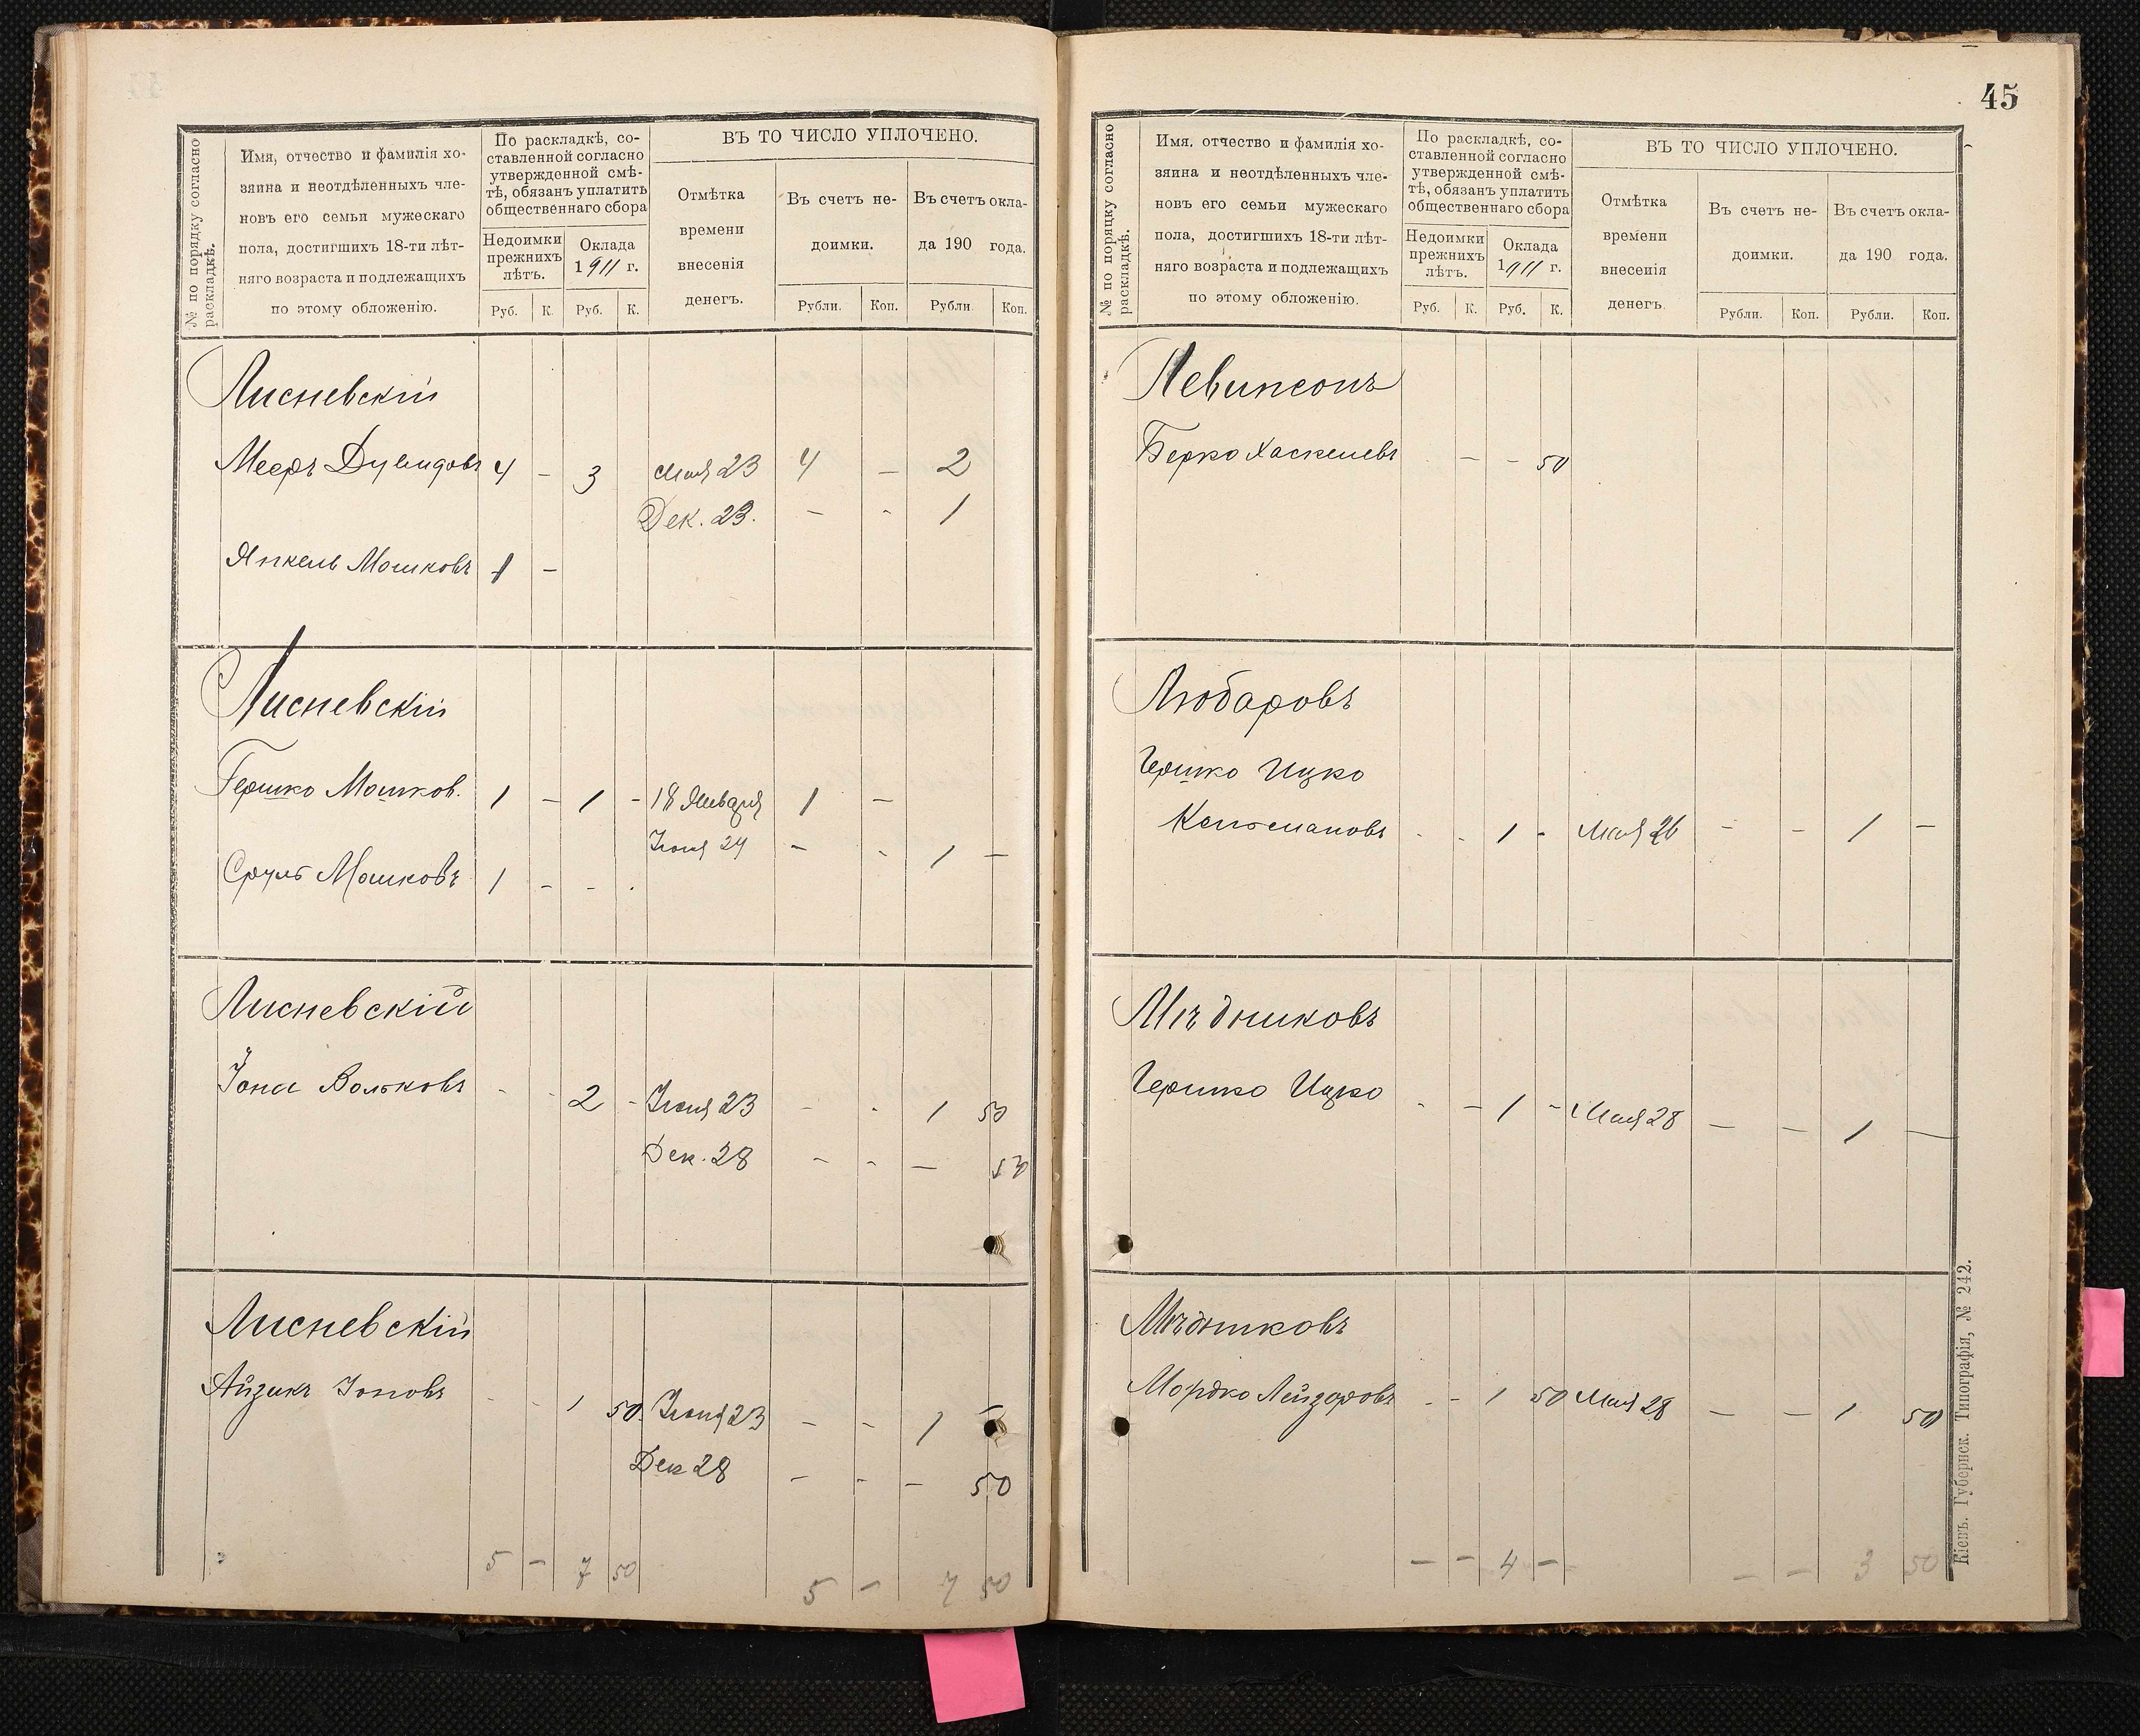 № по порядку согласно
раскладкѣ.
Имя, отчество и фамилія хо-
зяина и неотдѣленныхъ чле-
новъ его семьи мужескаго
пола, достигшихъ 18-ти лѣт-
няго возраста и подлежащихъ
по этому обложенію.
По раскладкѣ, со-
ставленной согласно
утвержденной смѣ-
тѣ, обязанъ уплатить
общественнаго сбора
Недоимки
прежнихъ
лѣтъ.
Оклада
1911 г.
Руб. К. Руб. К.
ВЪ ТО ЧИСЛО УПЛОЧЕНО.
Отмѣтка
времени
внесенія
денегъ.
Въ счетъ не-
доимки.
Въ счетъ окла-
да 190 года.
Рубли. Коп. Рубли Коп.
Лисневскій
Мееръ Дувидовъ 4 - 3 Мая 23 4 - 2
Дек. 23. - - 1
Янкель Мошковъ 1 -
Лисневскій
Гершко Мошков. 1 - 1 - 18 Января 1 -
Іюня 24 - - 1 -
Сруль Мошковъ 1 - - .
Лисневскій
Іона Вольковъ - - 2 - Іюня 23 - - 1 50
Дек. 28 - - - 50
Лисневскій
Айзикъ Іоновъ - - 1 50 Іюня 23 - - 1 -
Дек 28 - - - 50
5 - 7 50 5 - 7 50
45
№ по поряцку согласно
раскладкѣ.
Имя, отчество и фамилія хо-
зяина и неотдѣленныхъ чле-
новъ его семьи мужескаго
пола, достигшихъ 18-ти лѣт-
няго возраста и подлежащихъ
по этому обложенію.
По раскладкѣ, со-
ставленной согласно
утвержденной смѣ-
тѣ, обязанъ уплатить
общественнаго сбора
Недоимки
прежнихъ
лѣтъ.
Оклада
1911 г.
Руб. К. Руб. К.
ВЪ ТО ЧИСЛО УПЛОЧЕНО.
Отмѣтка
времени
внесенія
денегъ.
Въ счетъ не-
доимки.
Въ счетъ окла-
да 190 года.
Рубли. Коп. Рубли. Коп.
Левинсонъ
Берко Хаскелевъ - - 50
Любаровъ
Гершко Ицко
Кельмановъ - - 1 - Мая 26 - - 1 -
Мѣдниковъ
Гершко Ицко - - 1 - Мая 28 - - 1 -
Мѣдниковъ
Мордко Лейзоровъ - - 1 50 Мая 28 - - 1 50
- - 4 - - - 3 50
Кіевъ. Губернск. Типографія, № 242.